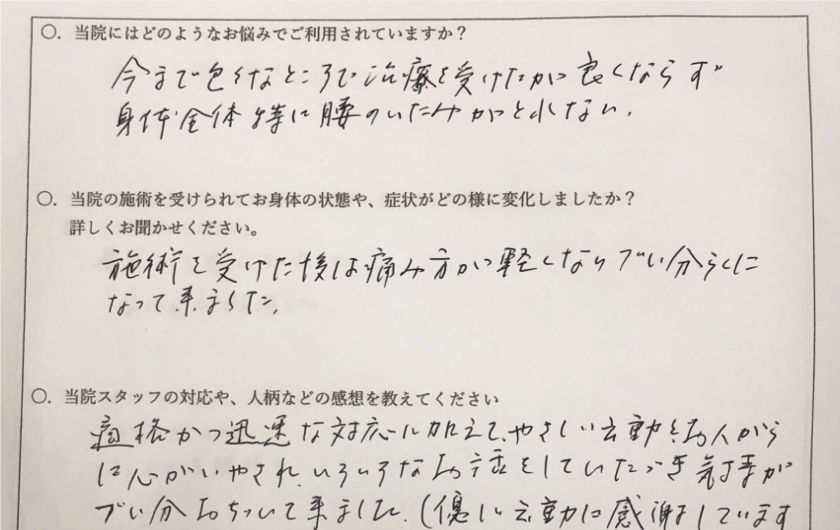 〇．当院にはどのようなお悩みでご利用されていますか？
今まで色々なところで治療を受けたが良くならず
身体全体特に腰のいたみがとれない。
〇．当院の施術を受けられてお身体の状態や、症状がどの様に変化しましたか？
詳しくお聞かせください。
施術を受けた後は痛み方が軽くなりずい分らくに
なって来ました。
〇．当院スタッフの対応や、人柄などの感想を教えてください
適格かつ迅速な対応に加えて、やさしい言動とお人がら
に心がいやされ、いろいろなお話をしていただき気持が
ずい分おちついて来ました。（優しい言動に感謝しています